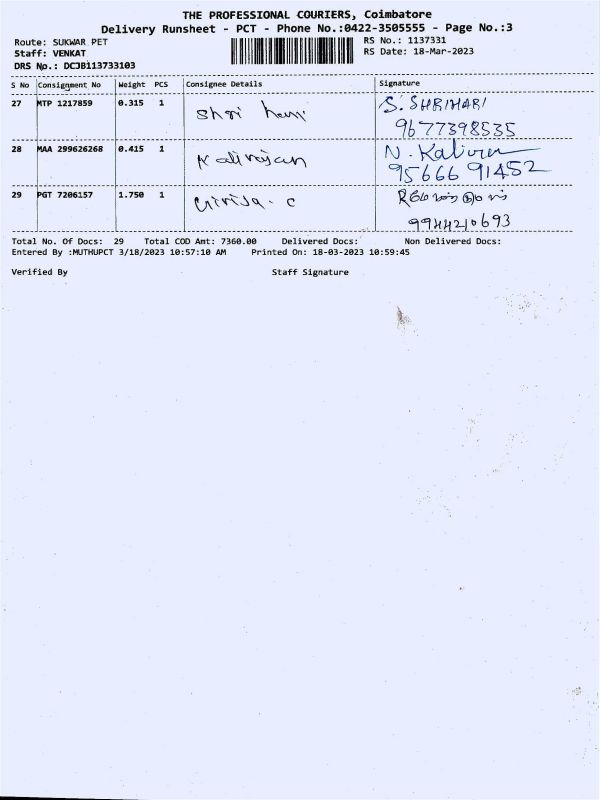 THE PROFESSIONAL COURIERS, Coimbatore
Delivery Runsheet - PCT - Phone No.:0422-3505555 - Page No.:3
Route: SUKWAR PET
RS No.: 1137331
Staff: VENKAT
RS Date: 18-Mar-2023
DRS No.: DCJB113733103
S No Consignment No Weight PCS Consignee Details Signature
27 MTP 1217859 0.315 1 Shri hari S. SHRIHARI
9677398535
28 MAA 299626268 0.415 1 Kalirajan N. Kalirajan
95666 91452
29 PGT 7206157 1.750 1 Girija. C
9944210693
Total No. Of Docs: 29 Total COD Amt: 7360.00 Delivered Docs: Non Delivered Docs:
Entered By :MUTHUPCT 3/18/2023 10:57:10 AM Printed On: 18-03-2023 10:59:45
Verified By Staff Signature